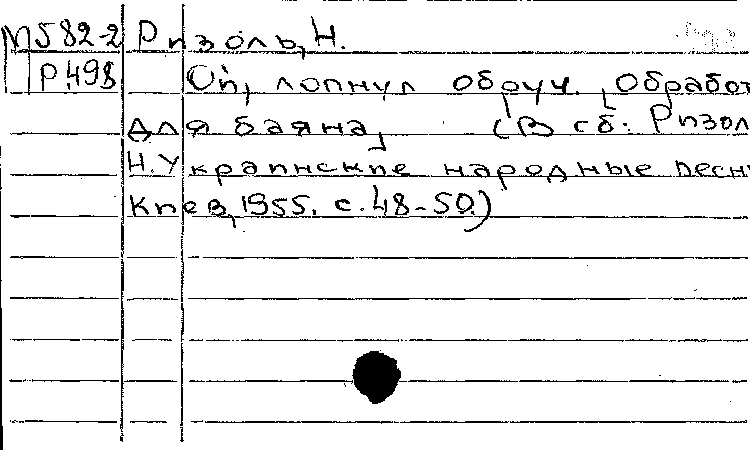 М582-2 Ризоль, Н.
Р498 Ой, лопнул обруч. [Обработ
для баяна] (В сб: Ризол
Н. Украинские народные песни
Киев, 1955. с. 48-50.)